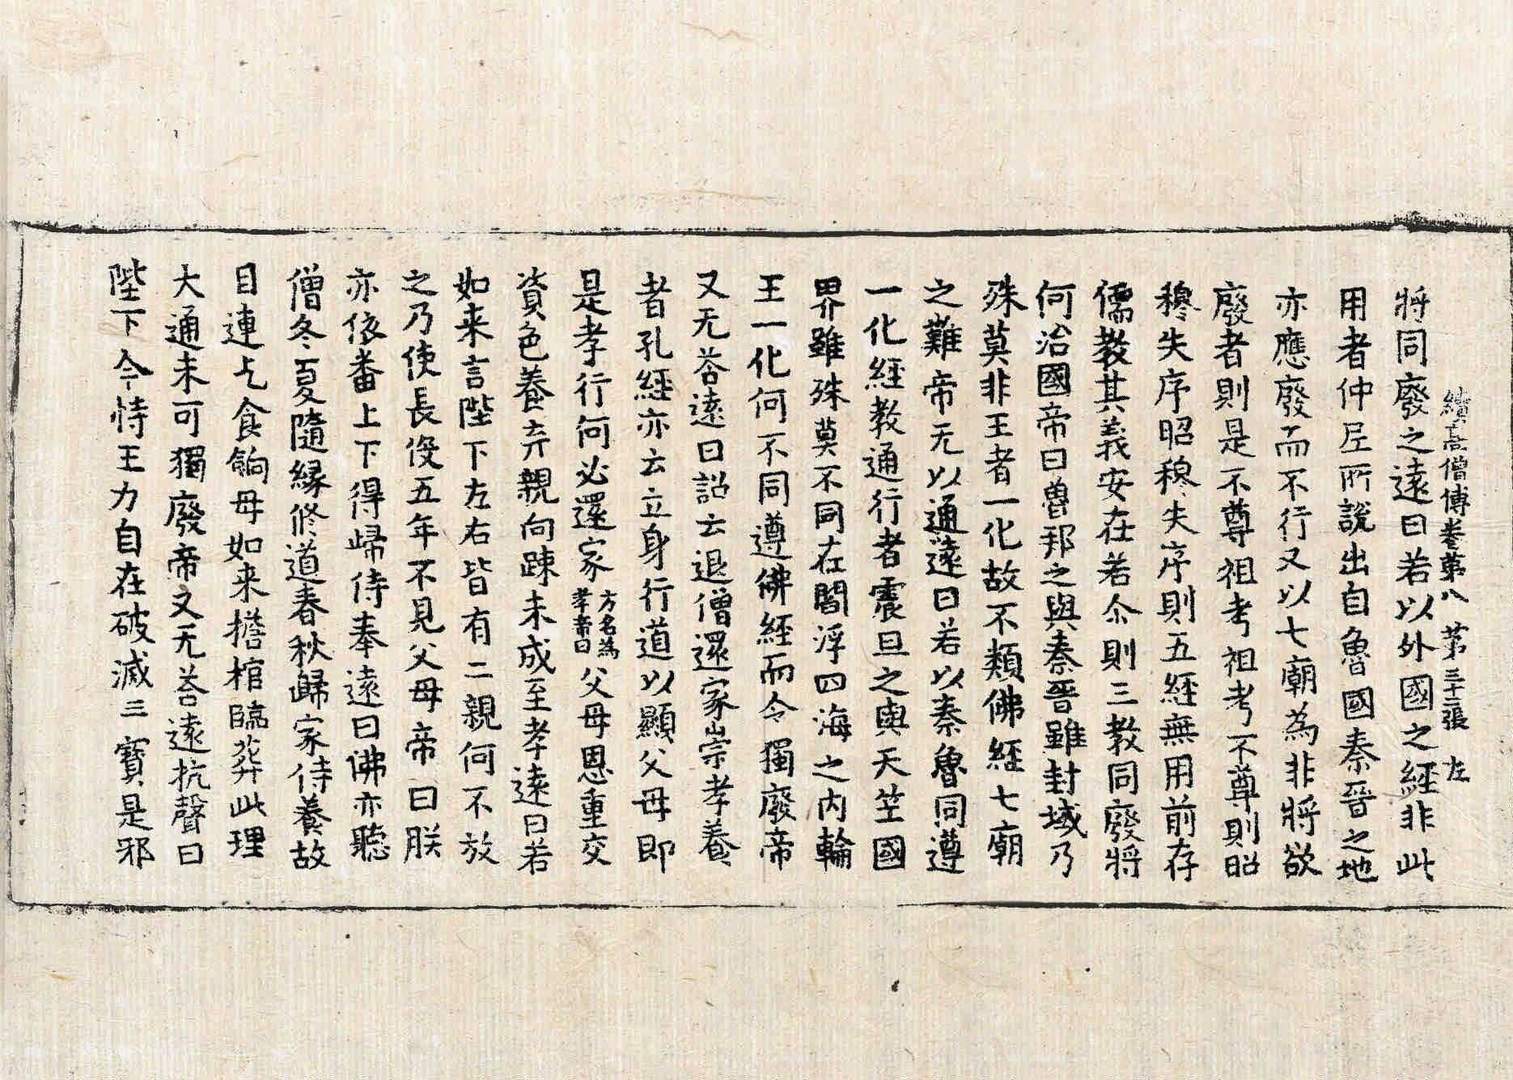 續高僧傳卷第八　第三十二張　左
將同廢之遠曰若以外國之經非此
用者仲尼所說出自魯國秦晉之地
亦應廢而不行又以七廟為非將欲
廢者則是不尊祖考祖考不尊則昭
穆失序昭穆失序則五經無用前存
儒教其義安在若尒則三教同廢將
何治國帝曰魯邦之與秦晉雖封域乃
殊莫非王者一化故不類佛經七廟
之難帝无以通遠曰若以秦魯同遵
一化經教通行者震旦之與天竺國
界雖殊莫不同在閻浮四海之內輪
王一化何不同遵佛經而今獨廢帝
又无荅遠曰詔云退僧還家崇孝養
者孔經亦云立身行道以顯父母即
是孝行何必還家方名為孝帝曰父母恩重交
資色養弃親向踈未成至孝遠曰若
如来言陛下左右皆有二親何不放
之乃使長役五年不見父母帝曰朕
亦依番上下得歸侍奉遠曰佛亦聽
僧冬夏隨緣修道春秋歸家侍養故
目連乞食餉母如来擔棺臨葬此理
大通未可獨廢帝又无荅遠抗聲曰
陛下今恃王力自在破滅三寶是邪